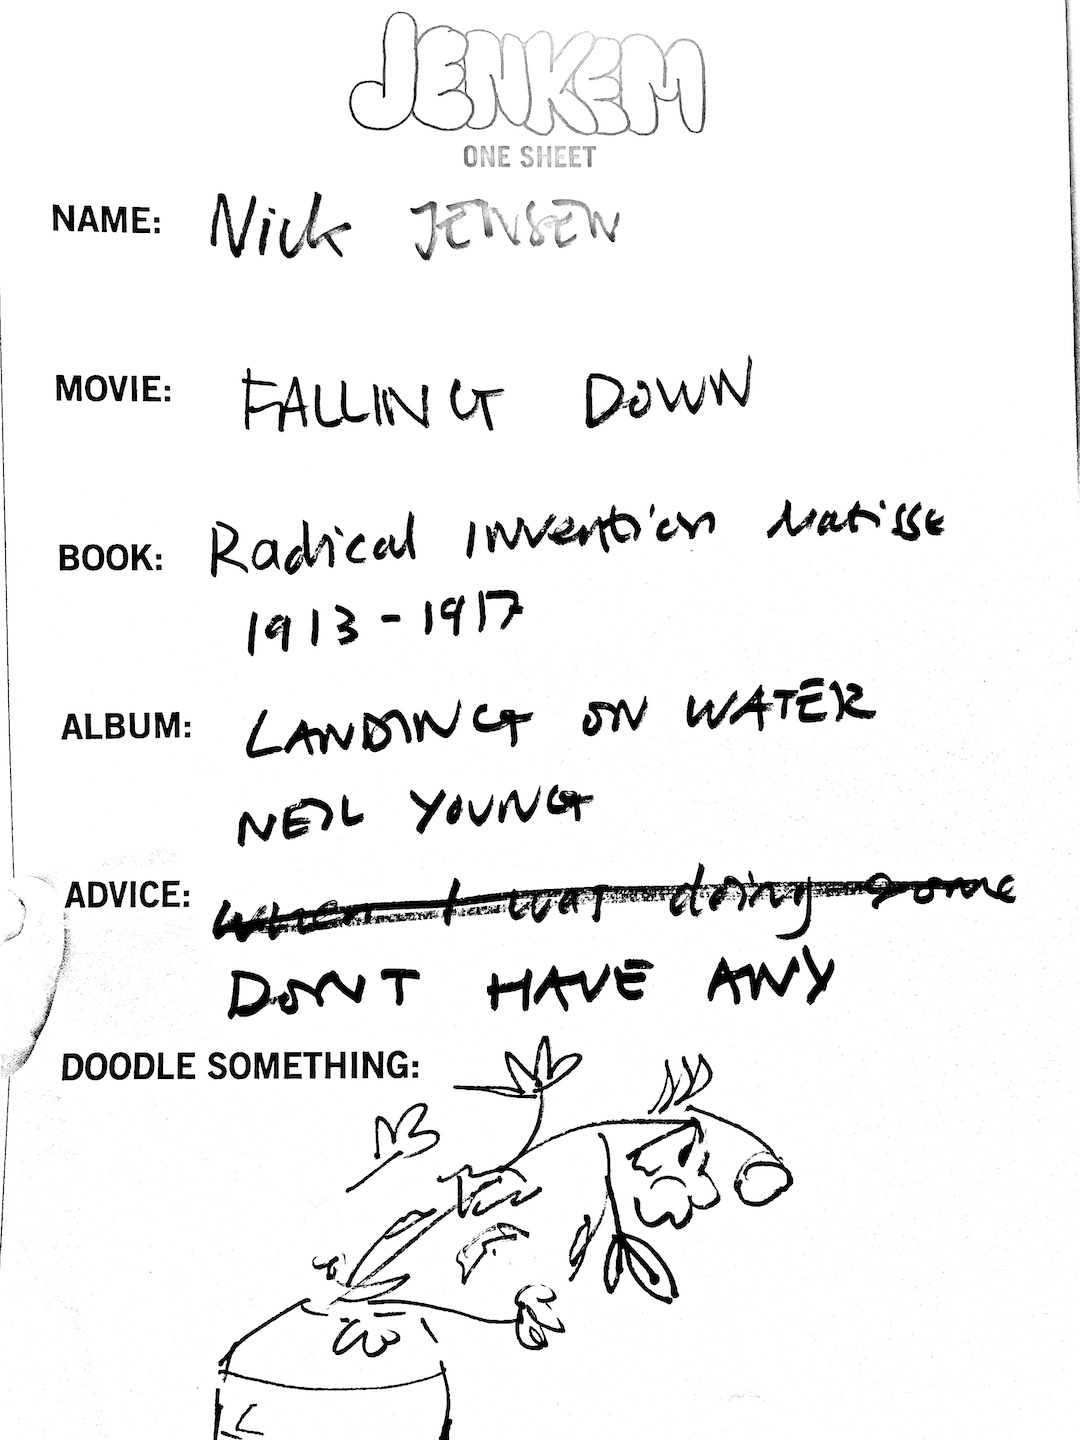 JENKEM
ONE SHEET
NAME: Nick JENSEN
MOVIE: FALLING DOWN
BOOK: Radical Invention Matisse
1913-1917
ALBUM: LANDING ON WATER
NEIL YOUNG
ADVICE: When I was doing some
DONT HAVE ANY
DOODLE SOMETHING: